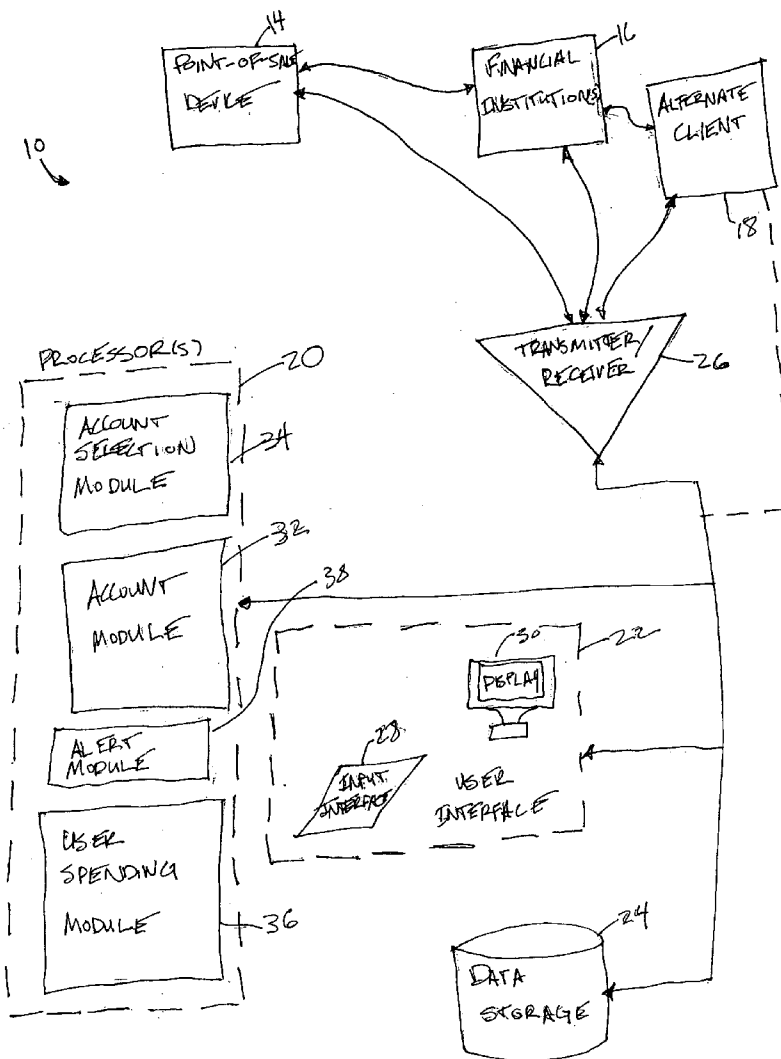 14
POINT-OF-SALE
DEVICE
16
FINANCIAL
INSTITUTIONS
ALTERNATE
CLIENT
18
10
TRANSMITTER/
RECEIVER
26
PROCESSOR(S)
20
ACCOUNT
SELECTION
MODULE
34
32
ACCOUNT
MODULE
38
ALERT
MODULE
USER
SPENDING
MODULE
36
22
30
DISPLAY
28
INPUT
INTERFACE
USER
INTERFACE
24
DATA
STORAGE